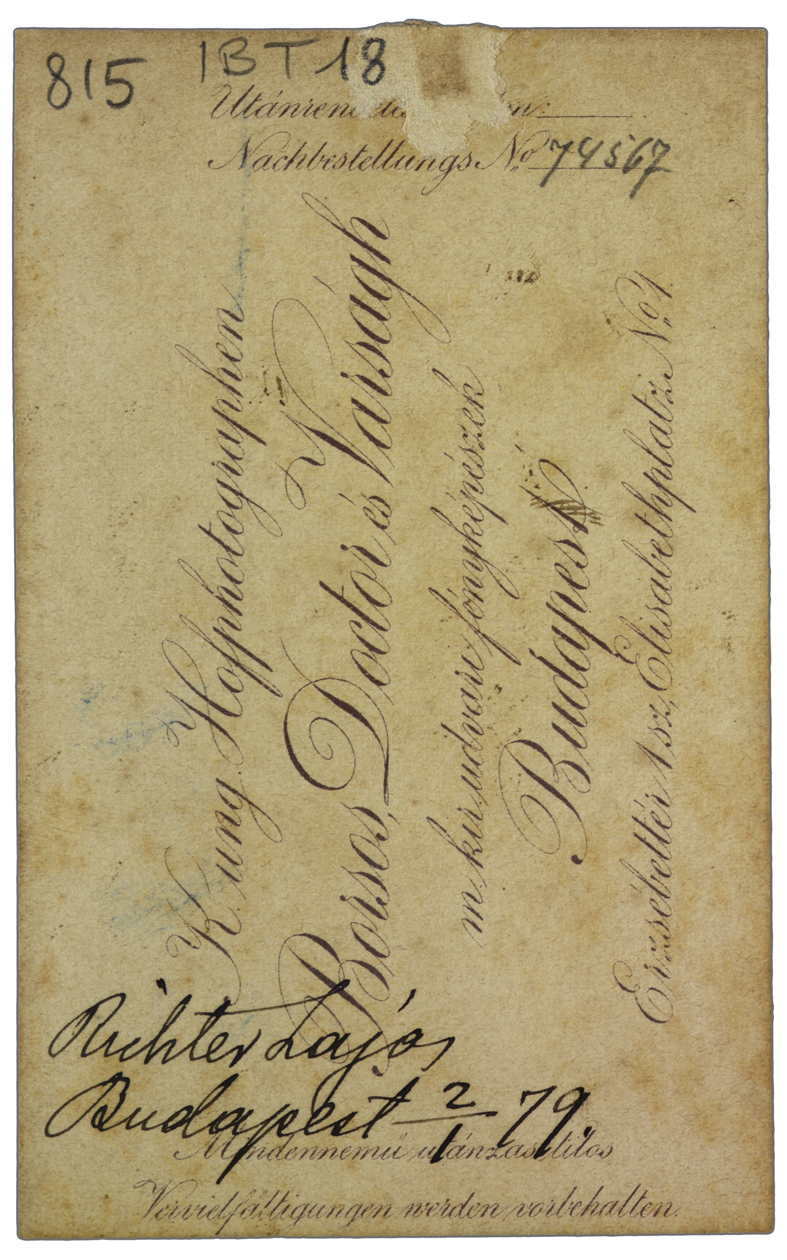 815 IBT 18
Nachbestellungs No 74567
K. ung. Hofphotographen
Borsos, Doctor és Varságh
m. kir. udvari fényképészek
Budapest
Erzsébettér 1 sz, Elisabethplatz No 1.
Richter Lajos
Budapest 2/1 79.
Mindennemü utánzás tilos
Vervielfältigungen werden vorbehalten.